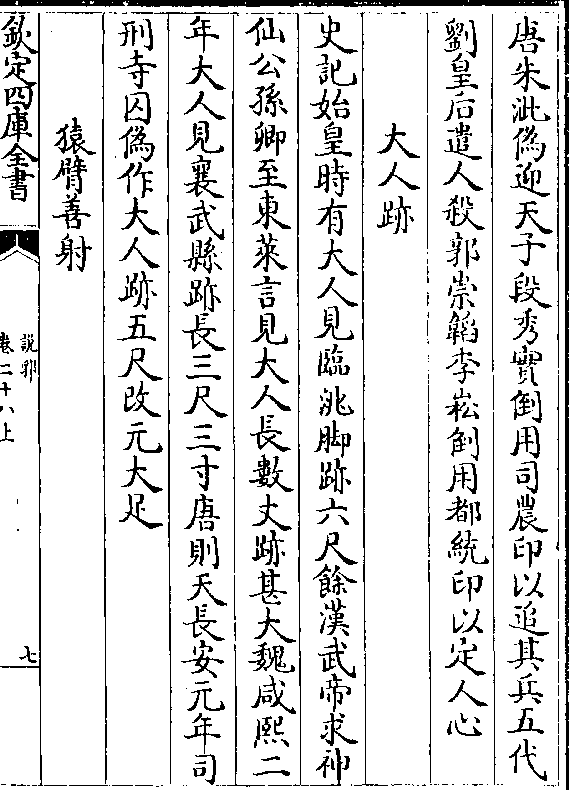 唐朱泚偽迎天子段秀實倒用司農印以追其兵五代
劉皇后遣人殺郭崇韜李崧倒用都統印以定人心
大人跡
史記始皇時有大人見臨洮脚跡六尺餘漢武帝求神
仙公孫卿至東萊言見大人長數丈跡甚大魏咸熙二
年大人見襄武縣跡長三尺三寸唐則天長安元年司
刑寺囚偽作大人跡五尺改元大足
猿臂善射
欽定四庫全書
說郛
卷二十八上
七